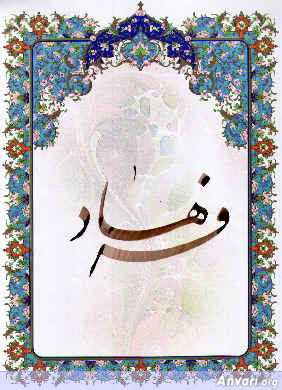 فرهاد
Anvari.org